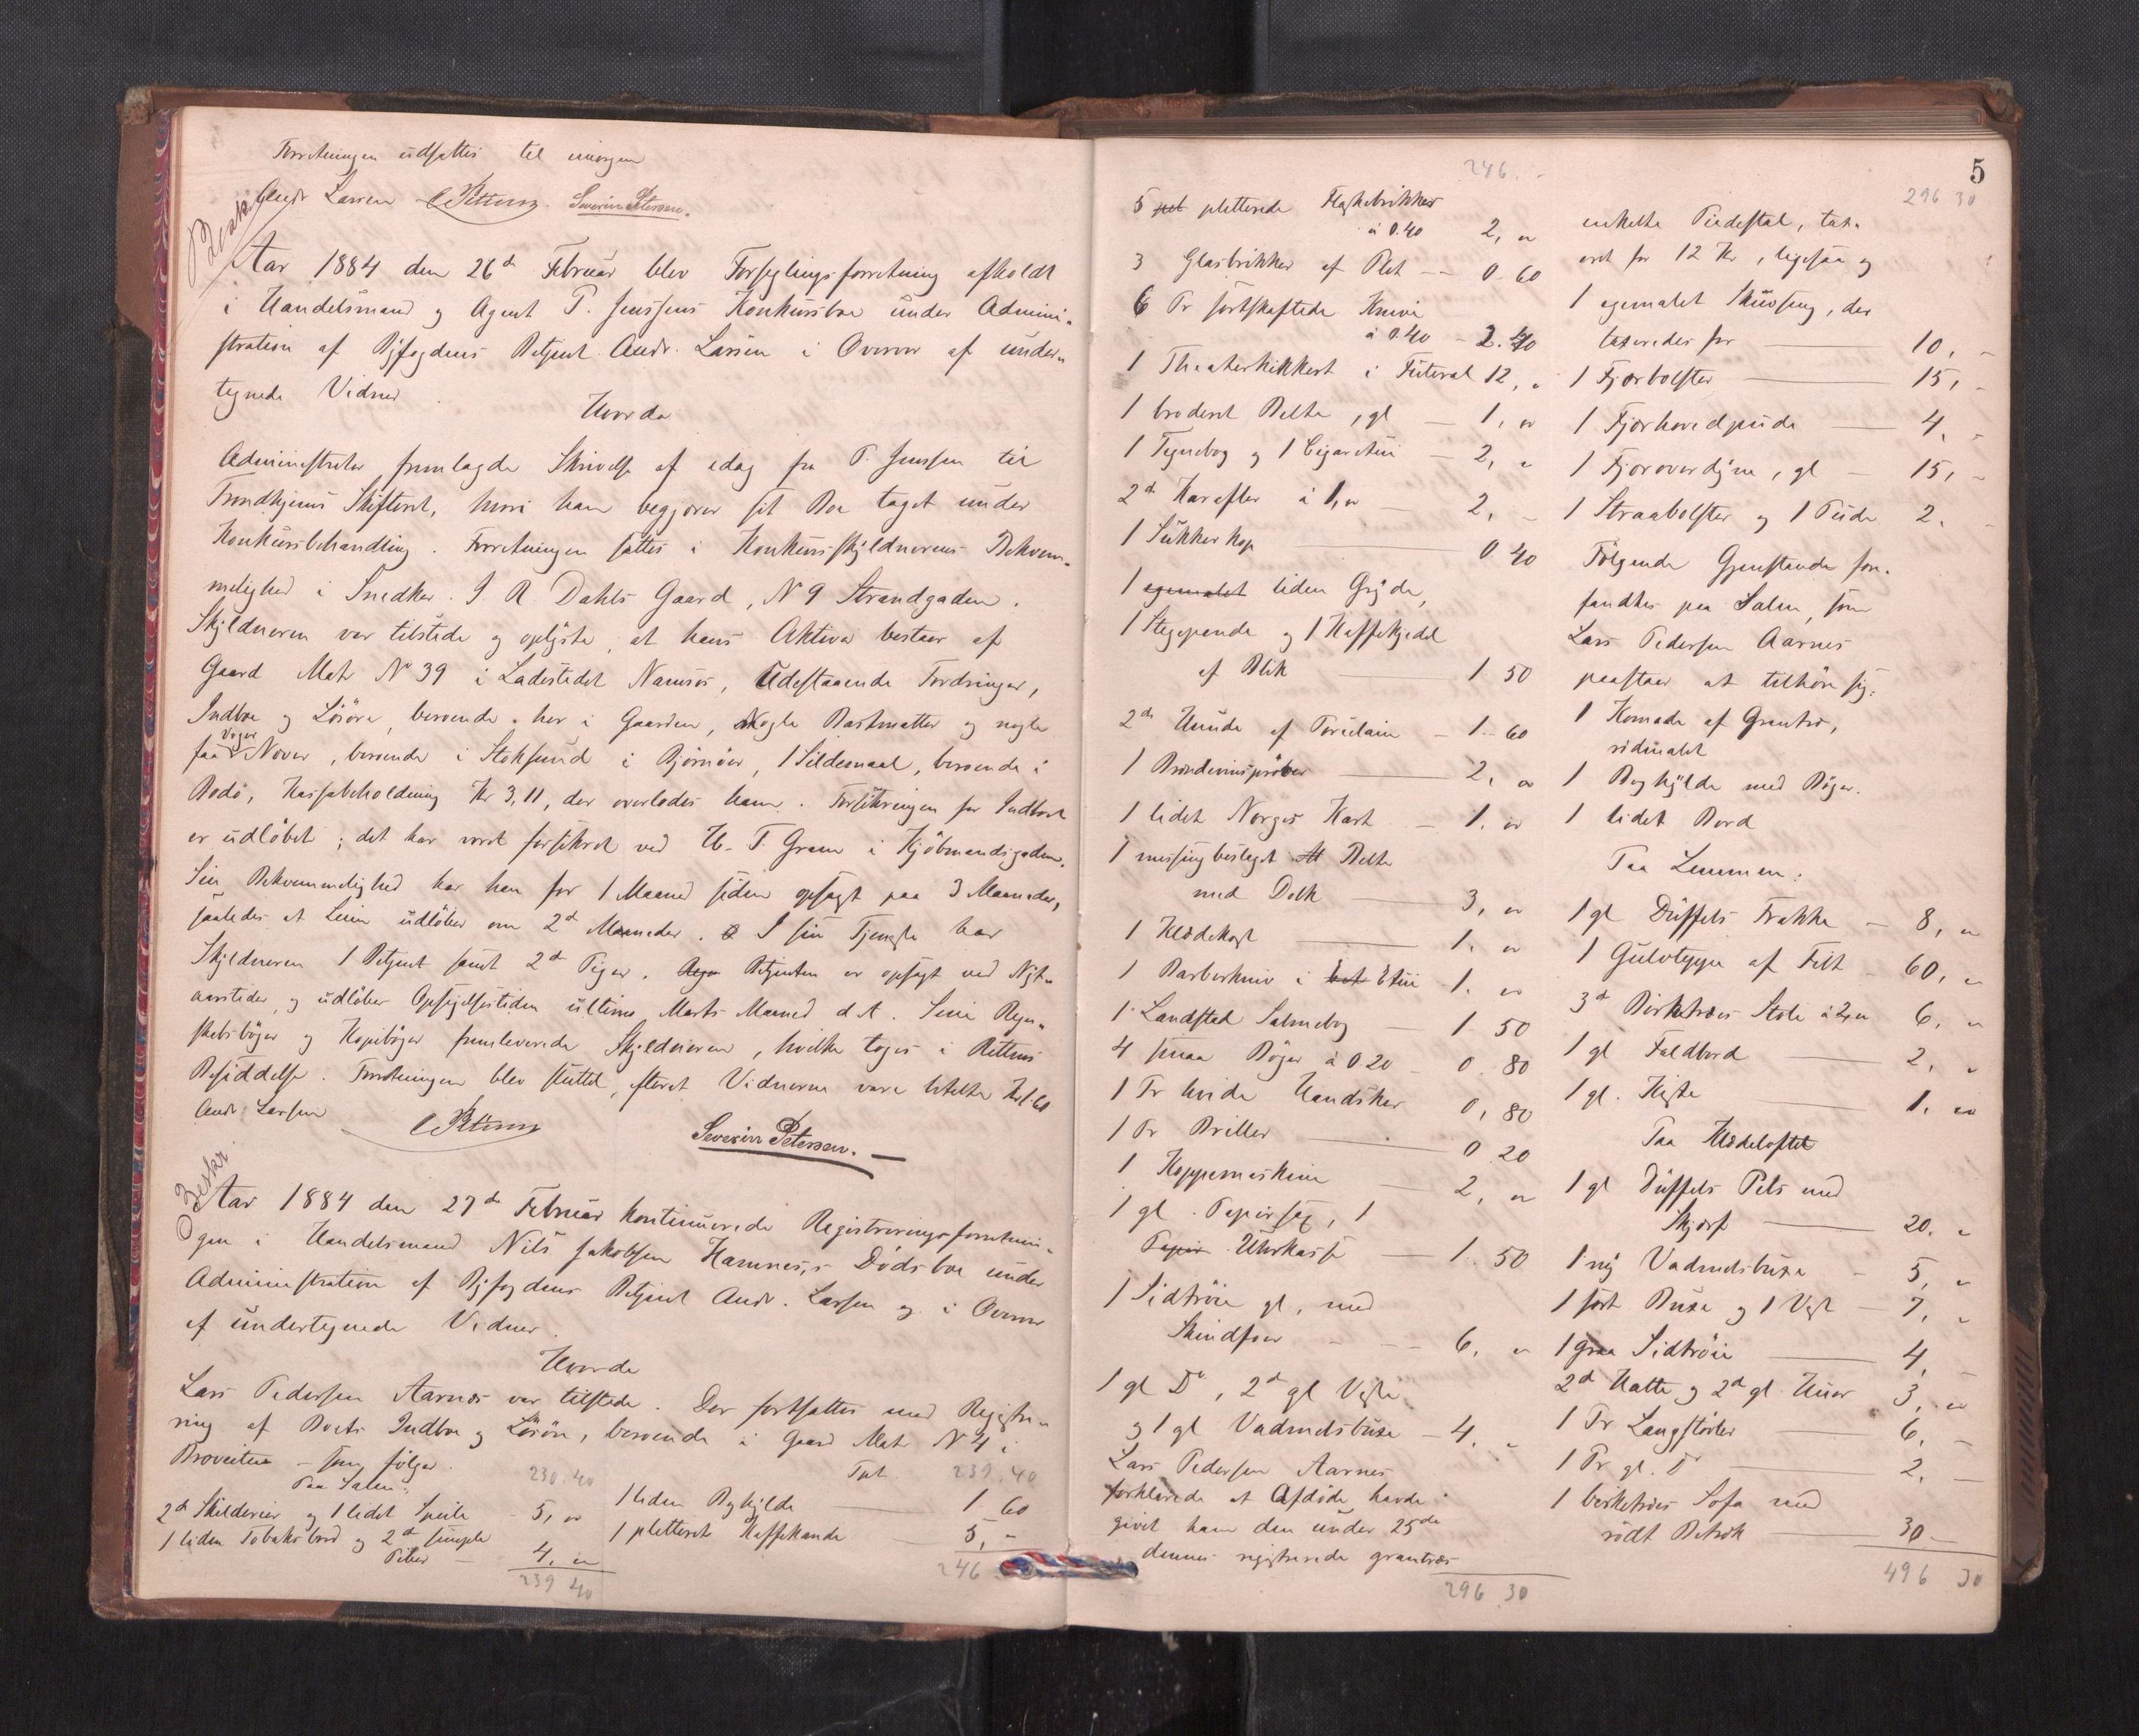 Forretningen udsattes til imorgen
Andr Larsen CPettersen. Severin Petersen.
Beskr
Aar 1884 den 26de Februar blev Forseglingsforretning afholdt
i Handelsmand og Agent P. Jenssens Konkursbo under Admini-
stration af Byfogdens Betjent Andr. Larsen i Overvær af under-
tegnede Vidner.
Hvorda
Administrator fremlagde Skrivelse af idag fra P. Jenssen til
Trondhjems Skifteret, hvori han begjærer sit Bo taget under
Konkursbehandling. Forretningen sattes i Konkursskyldnerens Bekvem-
melighed i Snedker J. R. Dahls Gaard, N 9 Strandgaden.
Skyldneren var tilstede og oplyste, at hans Aktiva bestaar af
Gaard Matr No 39 i Ladestedet Namsos, Udestaaende Fordringer,
Indbo og Løsøre, beroende her i Gaarden, Nogle Bastmatter og nogle
faa Nover, beroende i Stoksund i Bjørnør, 1 Sildemaal, beroende i
Bodø, Kassabeholdning Kr 3,11, der overlodes ham. Forsikringen for Indboet
er udløbet; det har været forsikret ved H. T. Gram i Kjøbmandsgaden.
Sin Bekvemmelighed har han for 1 Maaned siden opsagt paa 3 Maaneder,
saaledes at Leien udløber om 2de Maaneder. I sin Tjeneste har
Skyldneren 1 Betjent samt 2de Piger. Betjenten er opsagt ved Nyt-
aarstider, og udløber Opsigelsestiden ultimo Marts Maaned d. A. Sine Regn-
skabsbøger og Kopibøger fremleverede Skyldneren, hvilke toges i Rettens
Besiddelse. Forretningen blev sluttet, efterat Vidnerne vare betalte Kr 1 60
Andr. Larsen CPettersen Severin Petersen.
Beskr
Aar 1884 den 27de Februar kontinuerede Registreringsforretnin-
gen i Handelsmand Nils Jakobsen Hamnes's Dødsbo under
Administration af Byfogdens Betjent Andr. Larsen og i Overvær
af undertegnede Vidner.
Hvorda
Lars Pedersen Aarnes var tilstede. Der fortsattes med Registre-
ring af Boets Indbo og Løsøre, beroende i Gaard Matr N 4 i
Brøveiten – som følger.
Paa Salen: 230.40
2de Skilderier og 1 lidet Speile 5, "
1 liden Tobaksbord og 2de simple
Piber 4, "
239 40
Tpt. 239.40
1 liden Boghylde 1 60
1 pletteret Kaffekande 5, "
246
5
246.
5 pletterede Flaskebrikker
à 0.40 2, "
3 Glasbrikker af Plet 0 60
6 Pr sortskaftede Knive
à 0.40 2.40
1 Theaterkikkert i Futeral 12, "
1 broderet Belte, gl 1, "
1 Tegnebog og 1 Cigaretui 2, "
2de Karafler à 1, " 2, "
1 Sukkerkop 0 40
1 liden Gryde,
1 Stegepande og 1 Kaffekjedel
af Blik 1 50
2de Hunde af Porcelain 1 60
1 Brændevinsprøver 2, "
1 lidet Norges Kart 1, "
1 messingbeslaget Belte
med Dolk 3, "
1 Klædekost 1, "
1 Barberkniv i Etui 1, "
1 Landstad Salmebog 1 50
4 smaa Bøger à 0 20 0 80
1 Pr hvide Handsker 0, 80
1 Pr Briller 0 20
1 Koppemaskine 2, "
1 gl. Papirsax, 1
Papir Uhrkasse 1. 50
1 Sidtrøie gl, med
Skindfoer 6, "
1 gl Do, 2de gl Veste
og 1 gl Vadmelsbuxe 4, "
Lars Pedersen Aarnes
forklarede at Afdøde havde
givet ham den under 25de
dennes registrerede grantræs
296 30
296 30
enkelte Piedestal, tax-
eret for 12 Kr, ligesaa og
1 egemalet Skuvseng, der
taxeredes for 10, "
1 Fjærbolster 15, "
1 Fjærhovedpude 4, "
1 Fjæroverdyne, gl 15, "
1 Straabolster og 1 Pude 2, "
Følgende Gjenstande fore-
fandtes paa Salen, som
Lars Pedersen Aarnes
paastaar at tilhøre sig:
1 Komode af Grantræ,
rødmalet
1 Boghylde med Bøger.
1 lidet Bord
Paa Lemmen:
1 gl Duffels Frakke 8, "
1 Gulvteppe af Filt 60, "
3de Birketræes Stole à 2, " 6, "
1 gl Faldbord 2, "
1 gl. Kiste 1, "
Paa Klædeloftet
1 gl Duffels Pels med
Skjærf 20, "
1 ny Vadmelsbuxe 5, "
1 sort Buxe og 1 Vest 7, "
1 graa Sidtrøie 4, "
2de Hatte og 2de gl Huer 3, "
1 Pr Langstøvler 6, "
1 Pr gl. Do 2, "
1 birketræes Sofa med
rødt Betræk 30 –
496 30